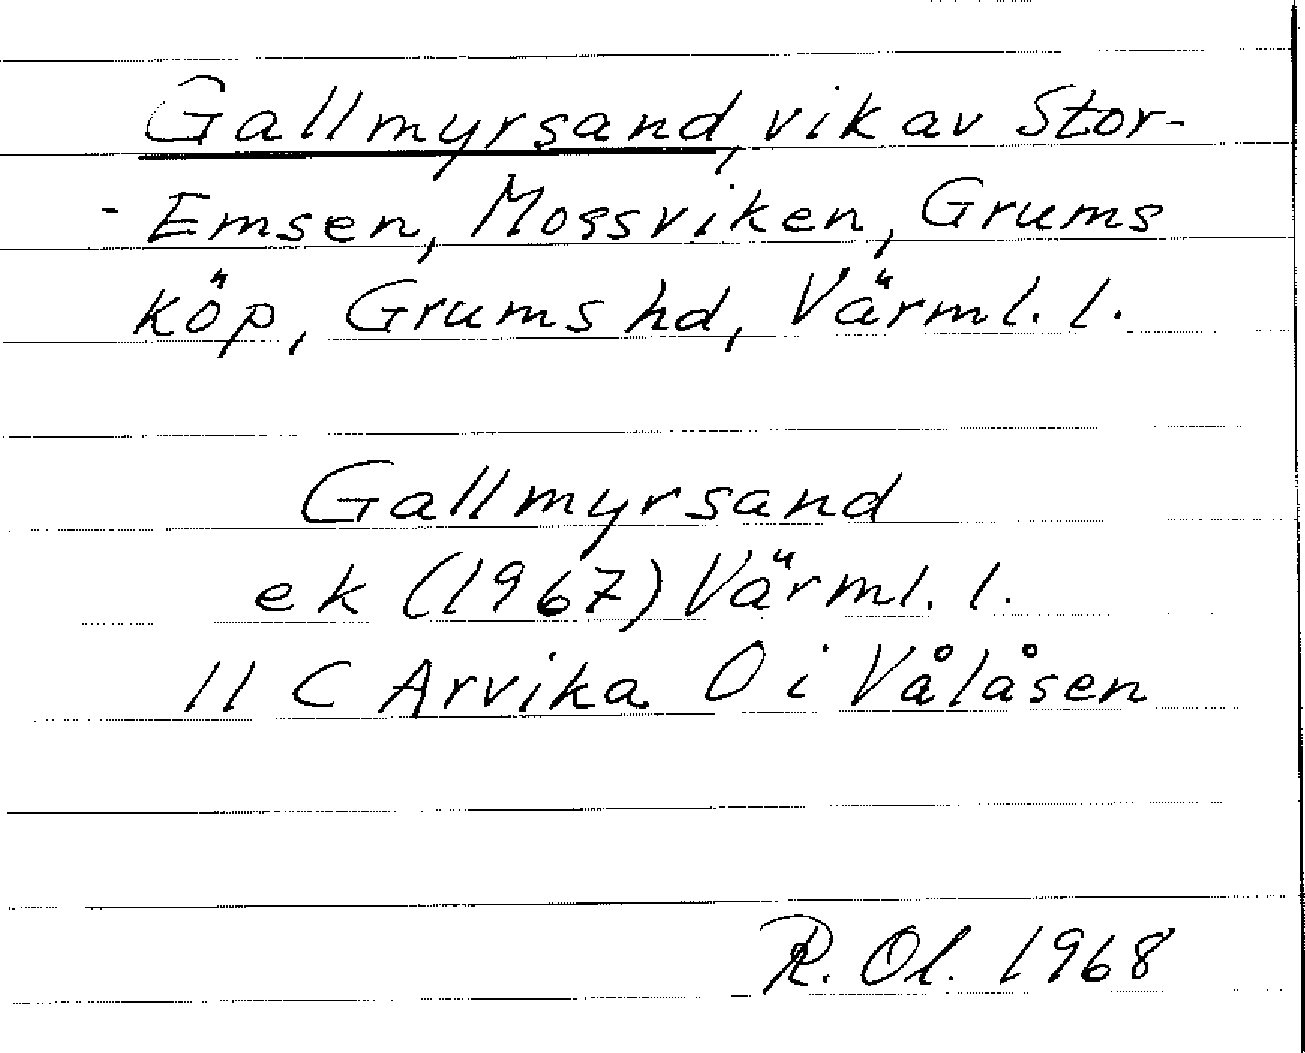 Gallmyrsand, vik av Stor-
- Emsen, Mossviken, Grums
köp, Grums hd, Värml. l.
Gallmyrsand
ek (1967) Värml. l.
11 C Arvika O i Vålåsen
R. Ol. 1968